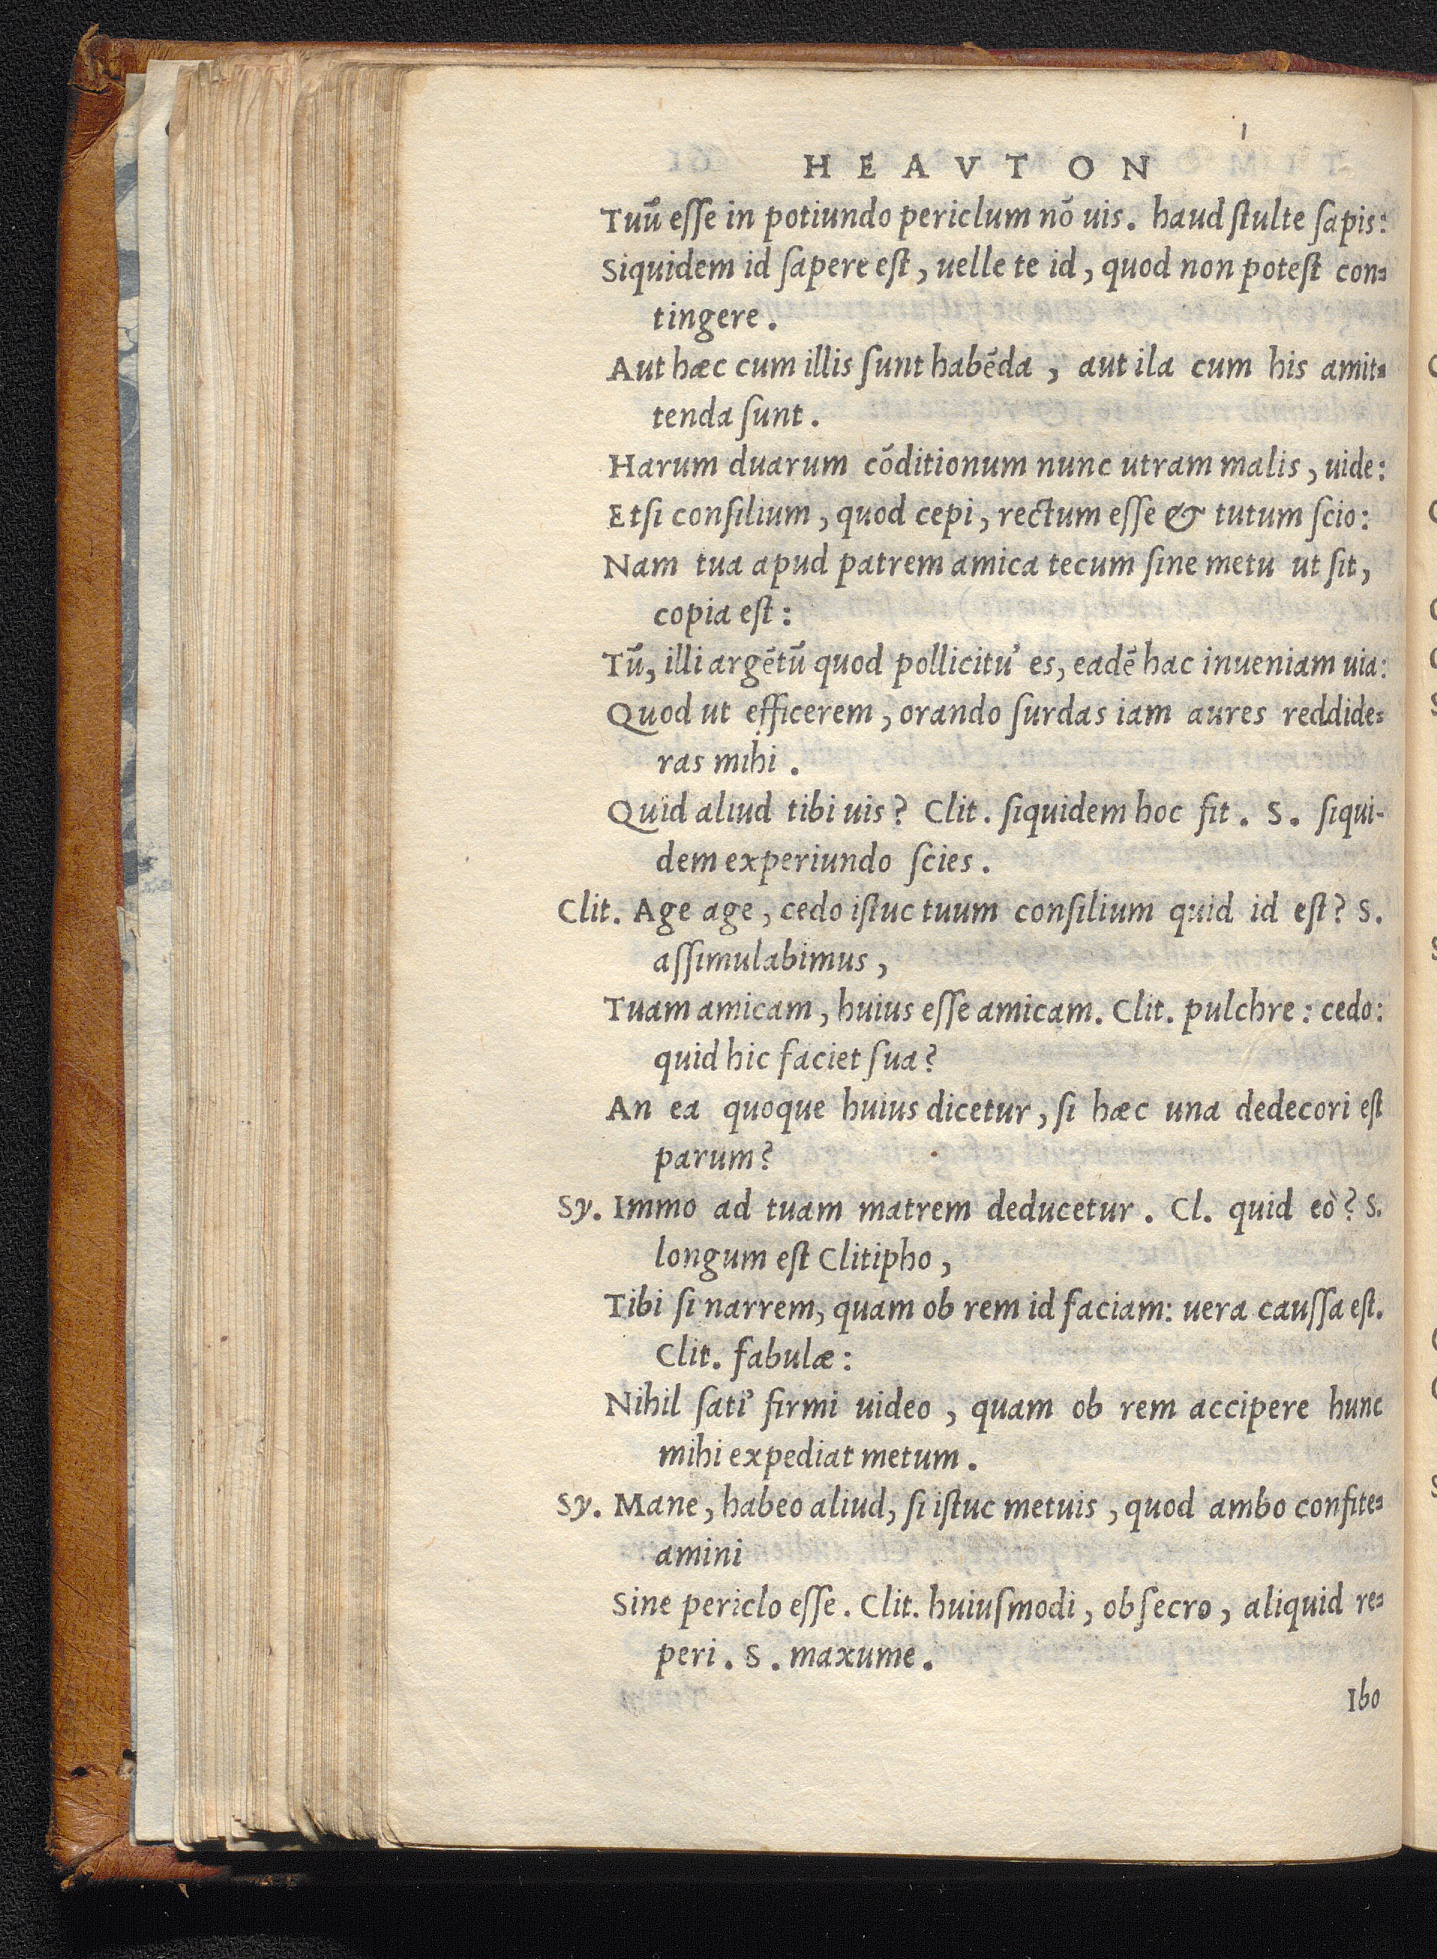 HEAVTON
Tuū eſſe in potiundo periclum nō uis. haud ſtulte ſapis:
Siquidem id ſapere eſt, uelle te id, quod non poteſt con-
tingere.
Aut hæc cum illis ſunt habēda, aut ila cum his amit-
tenda ſunt.
Harum duarum cōditionum nunc utram malis, uide:
Etſi conſilium, quod cepi, rectum eſſe & tutum ſcio:
Nam tua apud patrem amica tecum ſine metu ut ſit,
copia eſt:
Tū, illi argētū quod pollicitu' es, eadē hac inueniam uia:
Quod ut efficerem, orando ſurdas iam aures reddide-
ras mihi.
Quid aliud tibi uis? Clit. ſiquidem hoc fit. S. ſiqui-
dem experiundo ſcies.
Clit. Age age, cedo iſtuc tuum conſilium quid id eſt? S.
aſſimulabimus,
Tuam amicam, huius eſſe amicam. Clit. pulchre: cedo:
quid hic faciet ſua?
An ea quoque huius dicetur, ſi hæc una dedecori eſt
parum?
Sy. Immo ad tuam matrem deducetur. Cl. quid eò? S.
longum eſt Clitipho,
Tibi ſi narrem, quam ob rem id faciam: uera cauſſa eſt.
Clit. fabulæ:
Nihil ſati' firmi uideo, quam ob rem accipere hunc
mihi expediat metum.
Sy. Mane, habeo aliud, ſi iſtuc metuis, quod ambo confite-
amini
Sine periclo eſſe. Clit. huiuſmodi, obſecro, aliquid re-
peri. S. maxume.
Ibo